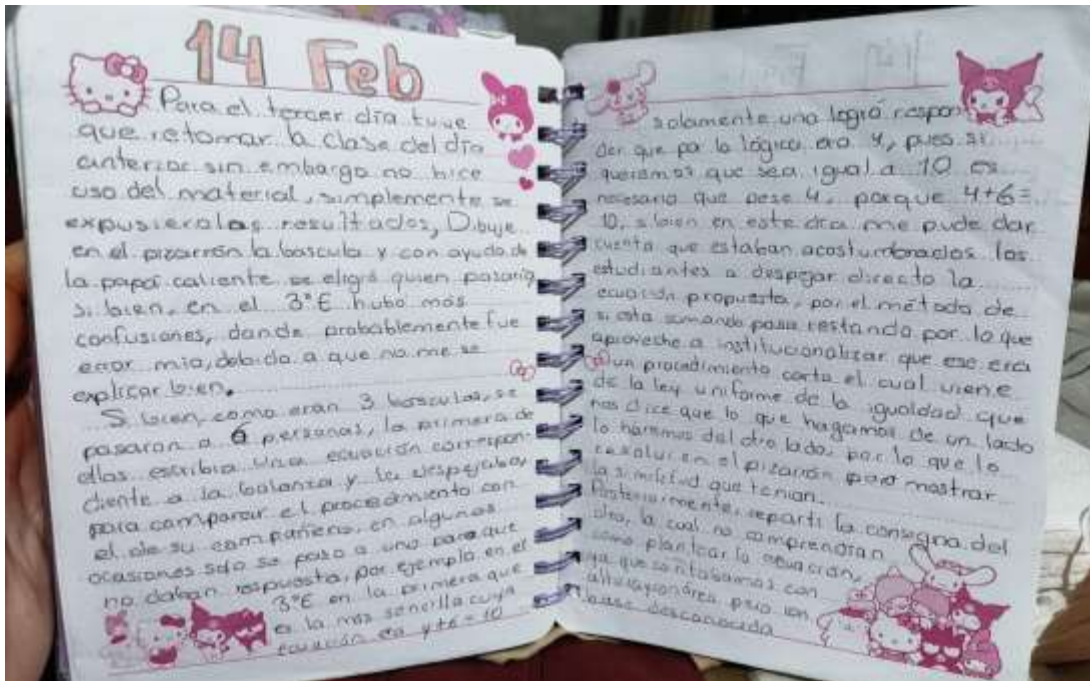 14 Feb
Para el tercer día tuve
que retomar la clase del día
anterior sin embargo no hice
uso del material, simplemente se
expusieralos resultados, Dibuje
en el pizarrón la bascula y con ayuda de
la papa caliente se eligió quien pasaría
si bien, en el 3°E hubo más
confusiones, donde probablemente fue
error mio, debido a que no me se
explicar bien.
Si bien, como eran 3 basculas, se
pasaron a 6 personas, la primera de
ellas escribia una ecuación correspon-
diente a la balanza y la despejaba,
para comparar el procedimiento con
el de su compañero, en algunas
ocasiones solo se paso a uno para que
no daban respuesta, por ejemplo en el
3°E en la primera que
es la más sencilla cuya
ecuación era y+6=10
solamente una logró respon-
der que por la lógica era 4, pues si
queríamos que sea igual a 10 es
necesario que pese 4, porque 4+6=
10, si bien en este día me pude dar
cuenta que estaban acostumbrados los
estudiantes a despejar directo la
ecuación propuesta, por el método de
si esta sumando pasa restando por lo que
aproveche a institucionalizar que ese era
un procedimiento corto el cual viene
de la ley uniforme de la igualdad que
nos dice que lo que hagamos de un lado
lo haremos del otro lado, por lo que lo
resolvi en el pizarrón para mostrar
la similitud que tenían.
Posteriormente, reparti la consigna del
dia, la cual no comprendían
como plantear la ecuación,
ya que contabamos con
altura y área pero con
base desconocida